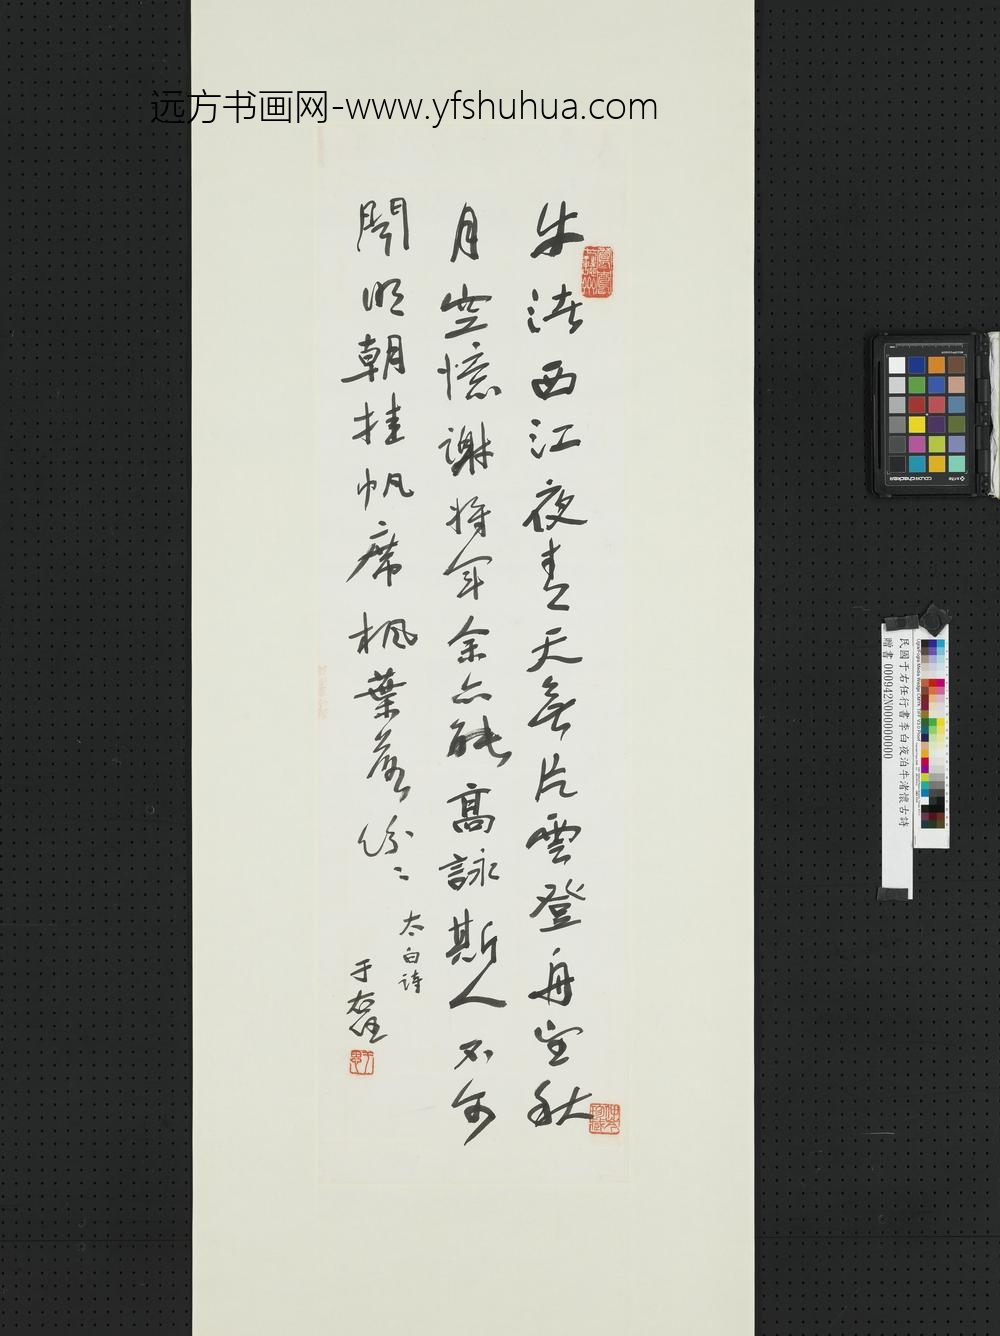 远方书画网-www.yfshuhua.com
牛渚西江夜青天無片雲登舟望秋
月空憶謝将军余亦能高詠斯人不可
聞明朝挂帆席枫葉落纷〻
太白詩
于右任
民國于右任行書李白夜泊牛渚懷古詩
贈書 000942N000000000
colorchecker
x-rite